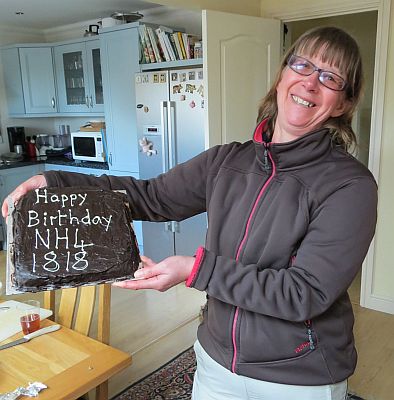 Happy
Birthday
NH4
1818